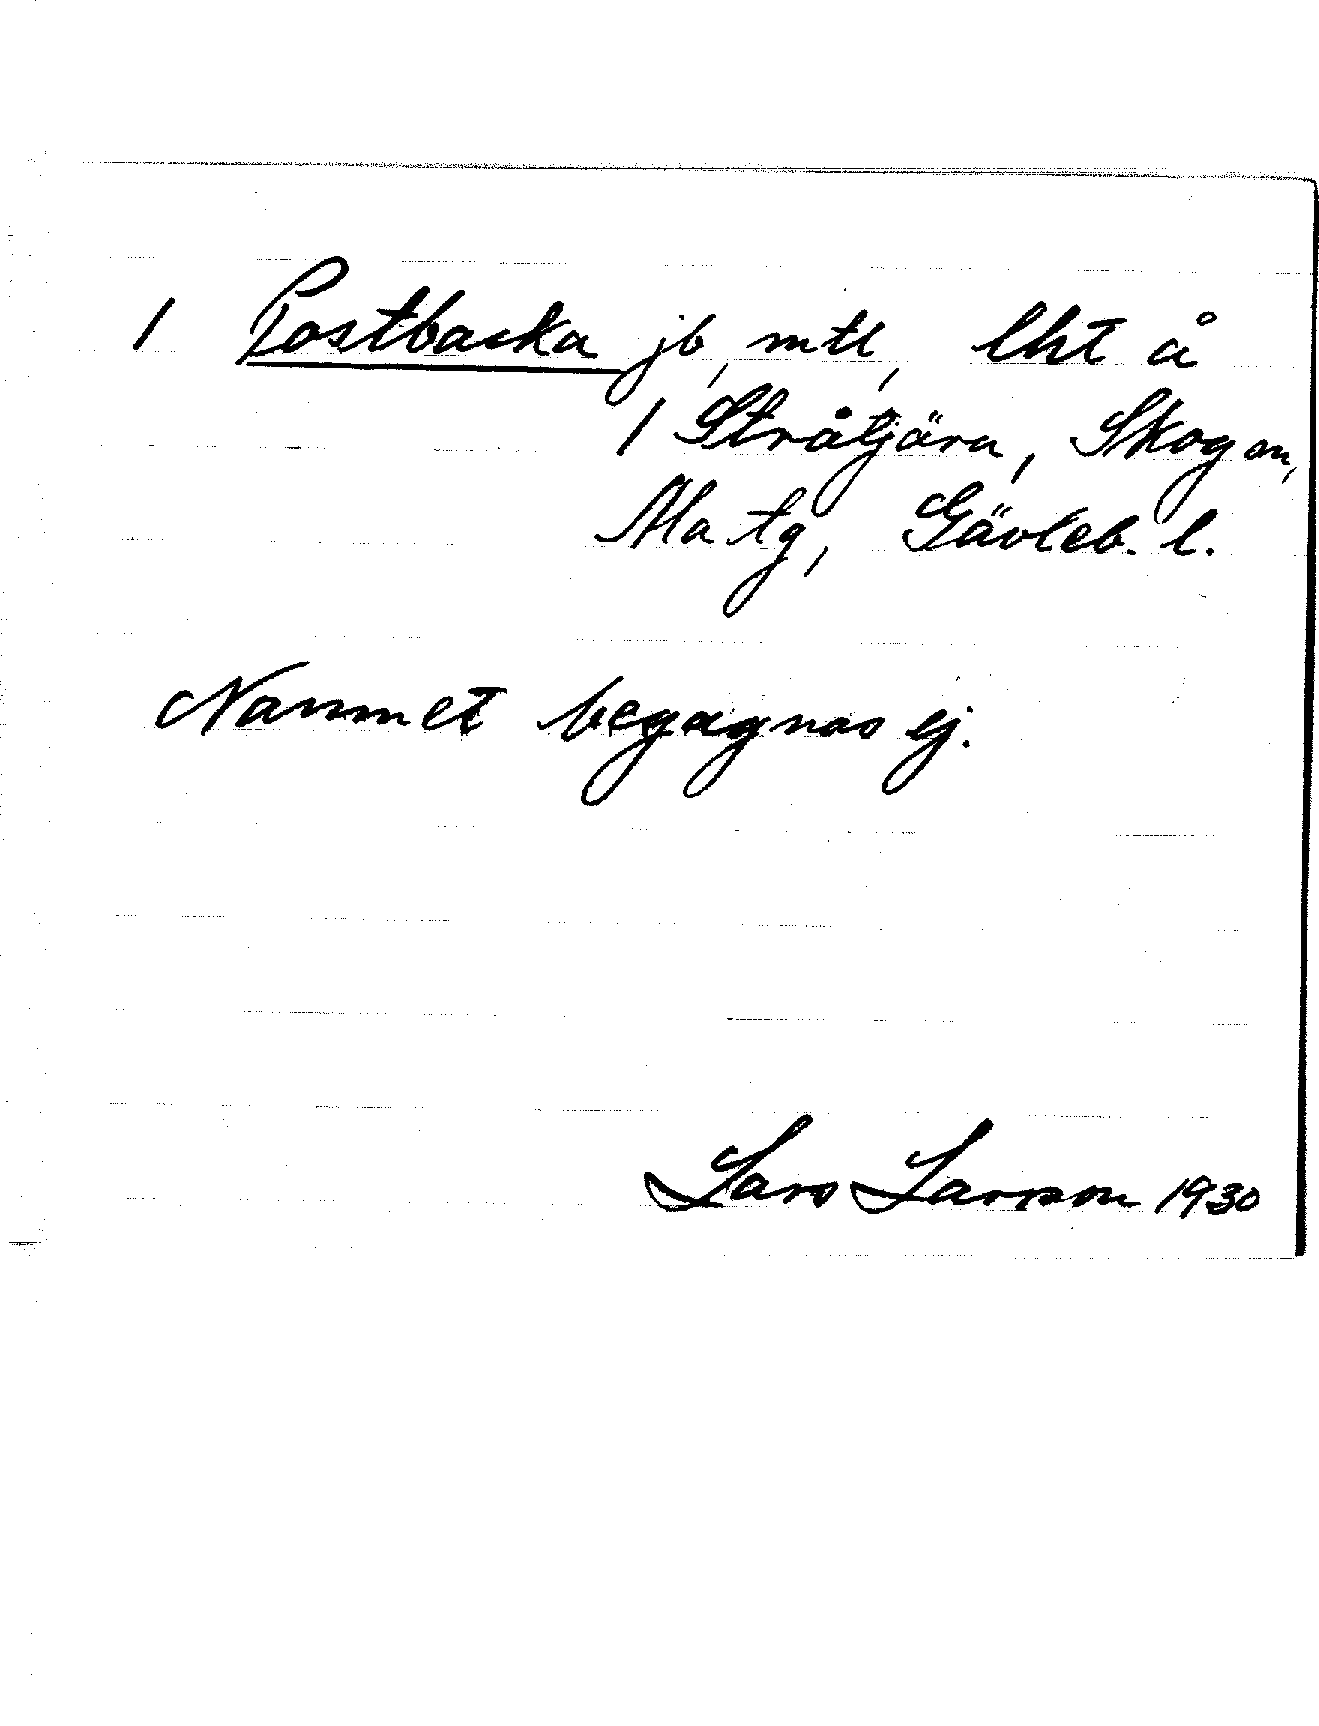 1 Postbacka jb, mtl, lht å
1 Stråtjära, Skog sn,
Ala tg, Gävleb. l.
Namnet begagnas ej.
Lars Larsson 1930